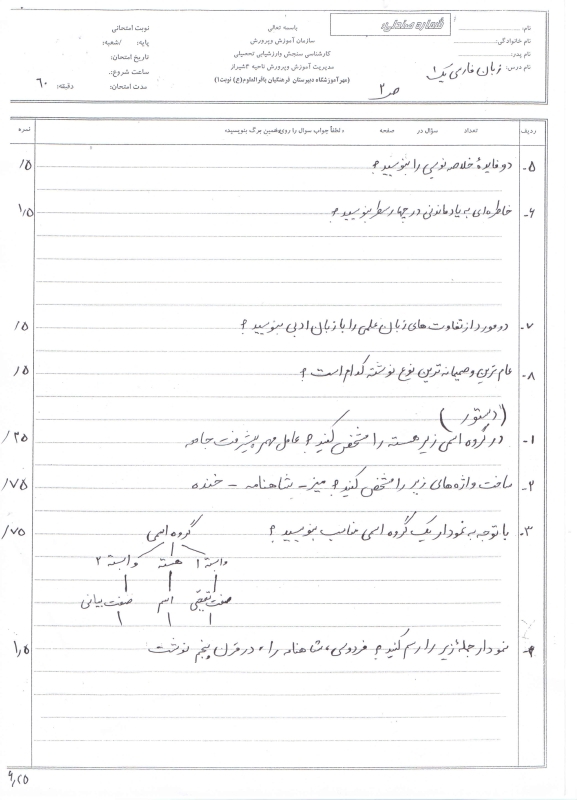 نام:
نام خانوادگی:
نام پدر:
نام درس: زبان فارسی یک
شماره صندلی:
باسمه تعالی
سازمان آموزش و پرورش
کارشناسی سنجش وارزشیابی تحصیلی
مدیریت آموزش وپرورش ناحیه ۴شیراز
(مهرآموزشگاه دبیرستان فرهنگیان باقرالعلوم(ع) نوبت۱)
نوبت امتحانی
پایه: /شعبه:
تاریخ امتحان:
ساعت شروع:
مدت امتحان: ۶۰ دقیقه:
ص ۲
ردیف تعداد سؤال در صفحه «لطفاً جواب سوال را روی همین برگ بنویسید» نمره
۵- دو فایدهٔ خلاصه نویسی را بنویسید؟ /۵
۶- خاطره‌ای به یاد ماندنی در چهار سطر بنویسید؟ ۱/۵
۷- دو مورد از تفاوت های زبان علمی را با زبان ادبی بنویسید؟ /۵
۸- عام ترین و صمیمانه ترین نوع نوشته کدام است؟ /۵
(دستور)
۱- در گروه اسمی زیر هسته را مشخص کنید؟ عامل مهم پیشرفت جامعه /۲۵
۲- ساخت واژه های زیر را مشخص کنید؟ میز - شاهنامه - خنده /۷۵
۳- با توجه به نمودار یک گروه اسمی مناسب بنویسید؟ /۷۵
گروه اسمی
وابسته ۱ هسته وابسته ۲
صفت اسم صفت بیانی
نمودار جملهٔ زیر را رسم کنید؟ فردوسی، شاهنامه را، در قرن پنجم نوشت ۱/۵
۶/۲۵